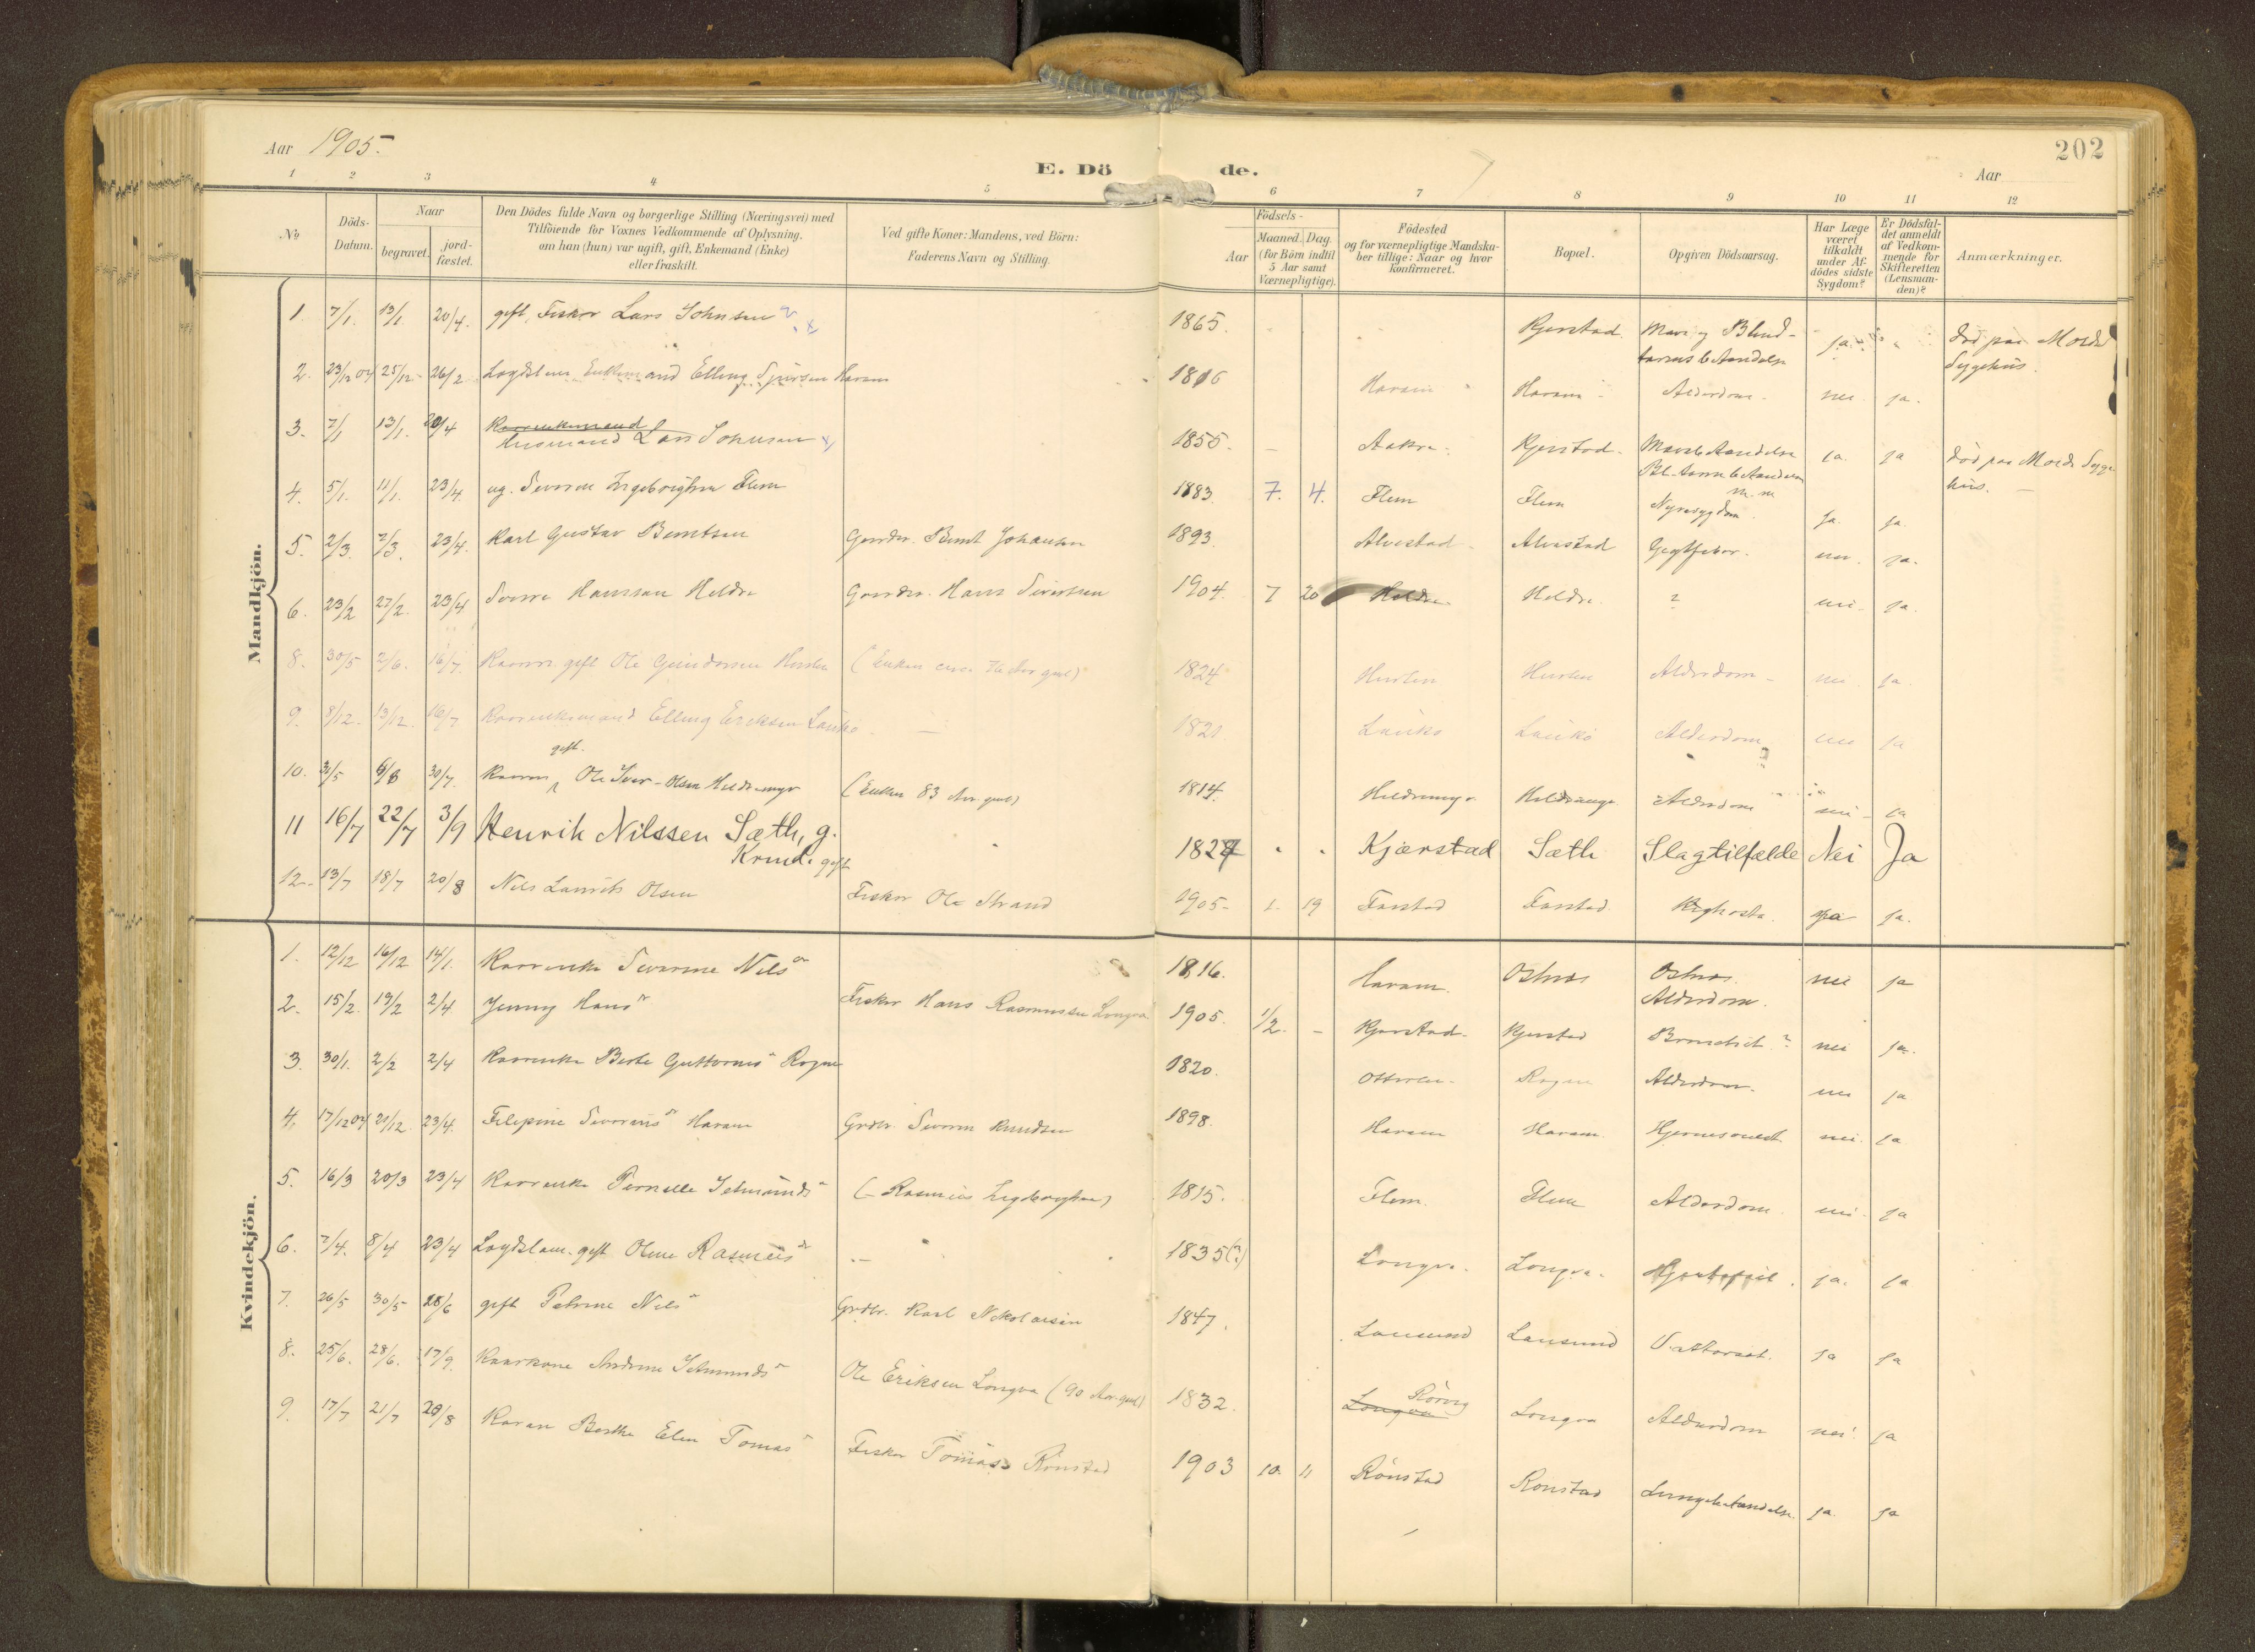 Aar 1905.
E. Dö de.
202
Aar
1 2 3 4 5 6 7 8 9 10 11 12
No
Döds-
Datum.
Naar
begravet.
jord-
fæstet.
Den Dödes fulde Navn og borgerlige Stilling (Næringsvei) med
Tilföiende for Voxnes Vedkommende af Oplysning.
om han (hun) var ugift, gift, Enkemand (Enke)
eller fraskilt.
Ved gifte Koner: Mandens, ved Börn:
Faderens Navn og Stilling.
Födsels-
Aar
Maaned. Dag.
(for Börn indtil
5 Aar samt
Værnepligtige).
Födested
og for værnepligtige Mandska-
ber tillige: Naar og hvor
konfirmeret.
Bopæl.
Opgiven Dödsaarsag.
Har Læge
været
tilkaldt
under Af-
dödes sidste
Sygdom?
Er Dödsfal-
det anmeldt
af Vedkom-
mende for
Skifteretten
(Lensman-
den)?
Anmærkninger.
Mandkjön.
1 7/1. 13/1. 20/4. gift, Fisker Lars Johnsen 1865. Kjerstad Mave og Blind-
tarmsbetændelse ja død paa Molde
Sygehus.
2. 23/12 04 25/12 26/2 Logdslem Enkemand Elling Sjursen Haram 1816 Haram Haram Alderdom nei ja.
3. 7/1 13/1. 20/4 Kaarenkemand
Husmand Lars Johnsen 1855. Aakre. Kjerstad. Mavebetændelse
Bl. tarmbetændelse
m. m. ja. ja død paa Molde Syge
hus.
4. 5/1. 11/1. 23/4. ug. Severin Ingebrigtsen Flem 1883. 7. 4. Flem Flem Nyresygdom. ja. ja.
5. 2/3. 7/3. 23/4. Karl Gustav Berntsen Gmdbr. Bernt Johansen 1893. Alvestad Alvestad Gigtfeber. nei. ja.
6. 23/2 27/2. 23/4 Sverre Hanssen Heldre Gaardbr. Hans Sivertsen 1904. 7 20 Heldre. Heldre. ? nei ja.
8. 30/5 2/6. 16/7. Kaarm. gift Ole Gundersen Hurlen 1824 Hurlen Hurlen Alderdom nei ja.
9. 8/12. 13/12. 16/7 Kaarenkemand Elling Eriksen Laukø 1821 Laukø Laukø Alderdom nei ja
10. 31/5 6/6 30/7. Kaarm gift. Ole Iver-Olsen Heldremyr (Enken 83 Aar gml) 1814. Heldremyr Heldremyr Alderdom nei ja
11 16/7 22/7 3/9 Henrik Nilssen Sæth, g.
Krmd. gift 1827 Kjærstad Sæth Slagtilfælde Nei Ja
12. 13/7 18/7 20/8 Nils Laurits Olsen Fisker Ole Strand 1905 1. 19 Farstad Farstad Kighoste. ja ja.
Kvindekjön.
1. 12/12 16/12 14/1. Kaarenke Severine Nilsdr 1816. Haram. Ostnes Ostnes.
Alderdom. nei ja
2. 15/2. 19/2 2/4 Jenny Hansdr Fisker Hans Rasmussen Longva 1905. 1/2. Kjerstad. Kjerstad Bronchit? nei ja.
3. 30/1. 2/2 2/4 Kaarenke Berte Guttormsdr Rogne 1820. Otterlei. Rogne Alderdom. nei ja
4. 17/12 04 21/12. 23/4. Filipine Severinsdr Haram Grdbr. Severin Knudsen 1898. Haram Haram. nei. ja
5. 16/3 20/3 23/4 Kaarenke Pernille Jetmundsdr (Rasmus Ingebrigtsen) 1815. Flem. Flem Alderdom. nei. ja
6. 7/4. 8/4 23/4 Logdslem. gift Oline Rasmusdr 1835(?) Longva. Longva. Hjertefeil. ja. ja
7. 26/5 30/5 25/6 gift Petrine Nilsdr Grdbr. Karl Nikolaisen 1847. Lausund Lausund Vattersot. ja ja
8. 25/6. 28/6. 17/9. Kaarkone Andrine Jetmundsdr Ole Eriksen Longva (90 Aar gml) 1832. Longva Røvig Longva Alderdom nei. ja
9. 17/7 21/7 20/8 Karen Berthe Elin Tomasdr Fisker Tomas Rønstad 1903 10. 11 Rønstad Rønstad Lungebetændelse. ja. ja